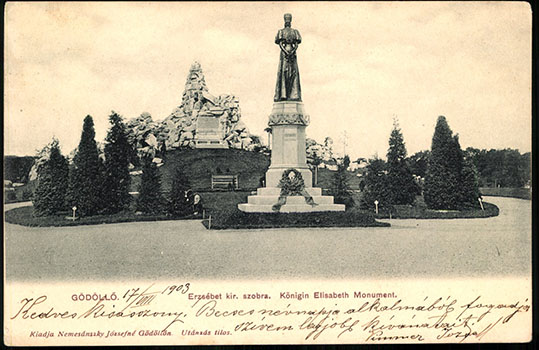 GÖDÖLLŐ. 17/VIII 1903 Erzsébet kir. szobra. Königin Elisabeth Monument.
Kedves Kisasszony. Becses névnapja alkalmából fogadja
szívem legjobb kivánatait.
Kiadja Nemesánszky Józsefné Gödöllőn Utánzás tilos.